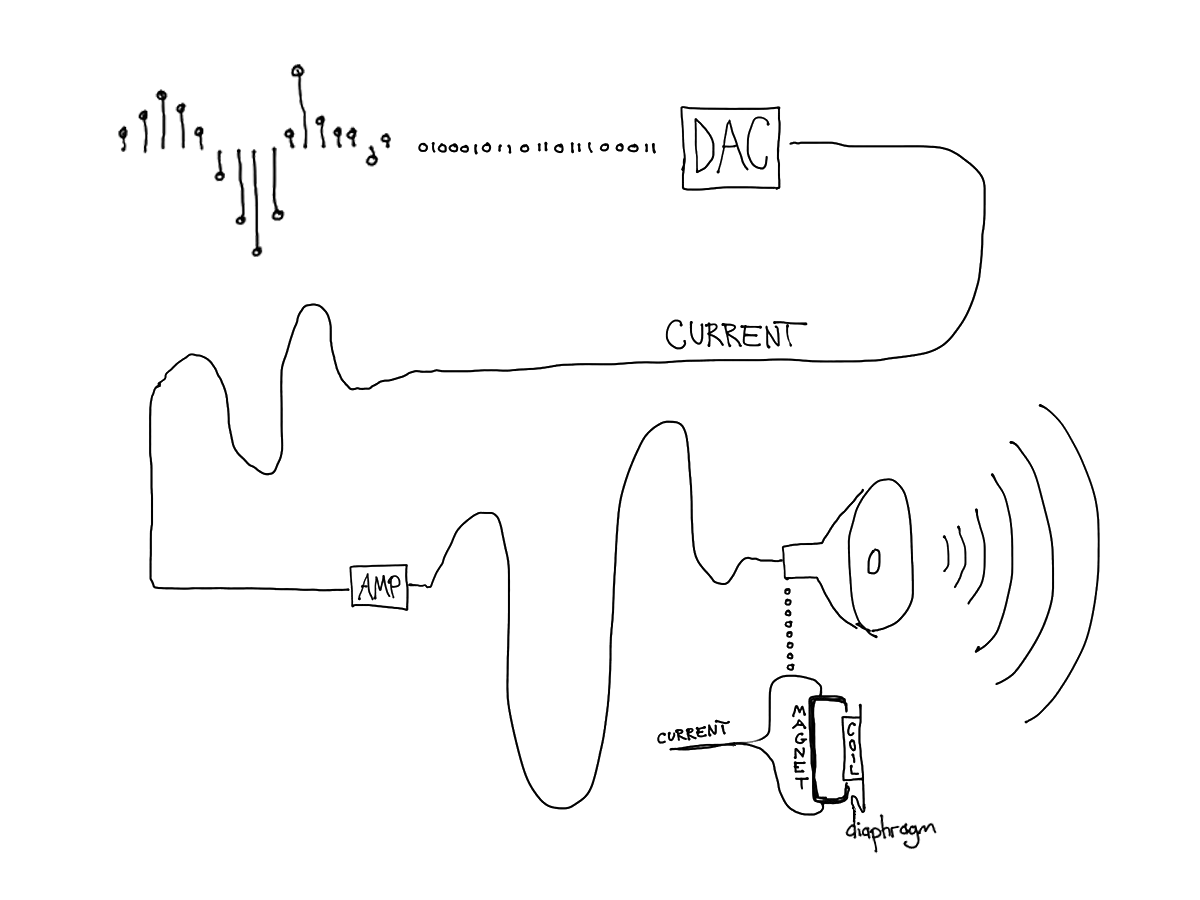 010001011011011100011
DAC
CURRENT
AMP
CURRENT
MAGNET
COIL
diaphragm